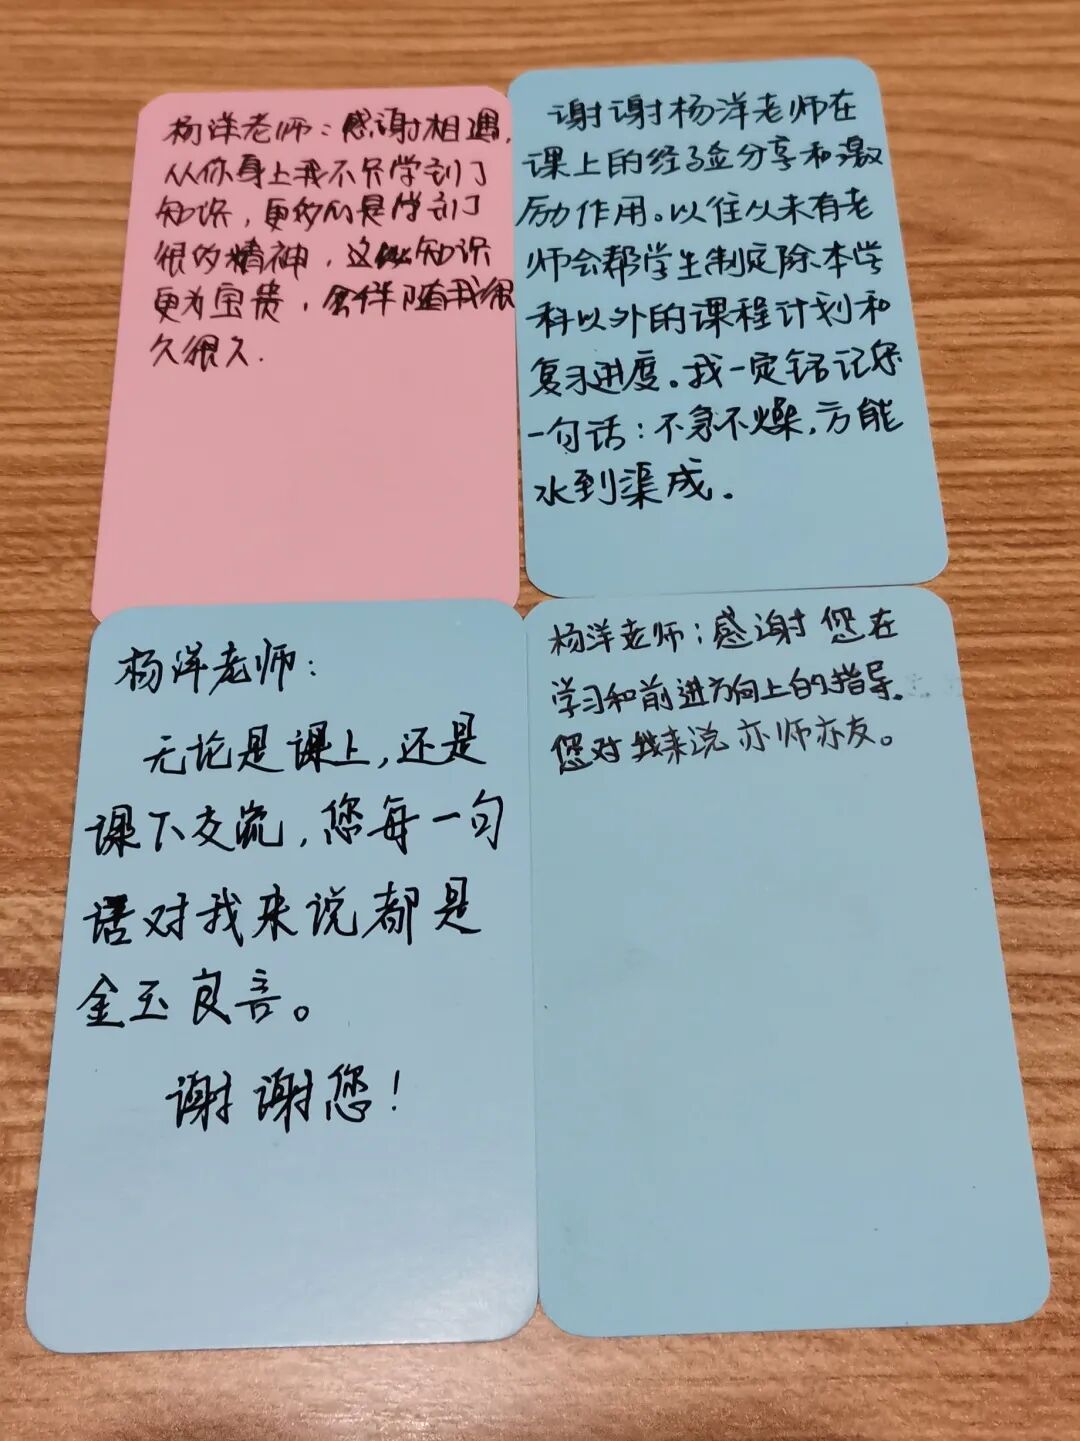 杨洋老师：感谢相遇，
从你身上我不只学到了
知识，更多的是学到了
很多精神，这比知识
更为宝贵，会伴随我很
久很久.
谢谢杨洋老师在
课上的经验分享和激
励作用。以往从未有老
师会帮学生制定除本学
科以外的课程计划和
复习进度。我一定铭记您
一句话：不急不燥，方能
水到渠成.
杨洋老师：
无论是课上，还是
课下交流，您每一句
话对我来说都是
金玉良言。
谢谢您！
杨洋老师：感谢您在
学习和前进方向上的指导.
您对我来说亦师亦友。